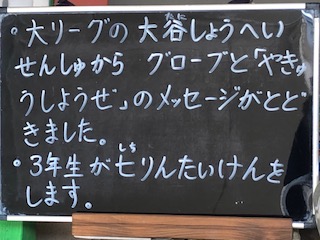 。大リーグの大谷しょうへい
せんしゅから グローブと「やきゅ
うしようぜ」のメッセージがとど
きました。
。3年生が七りんたいけんを
します。